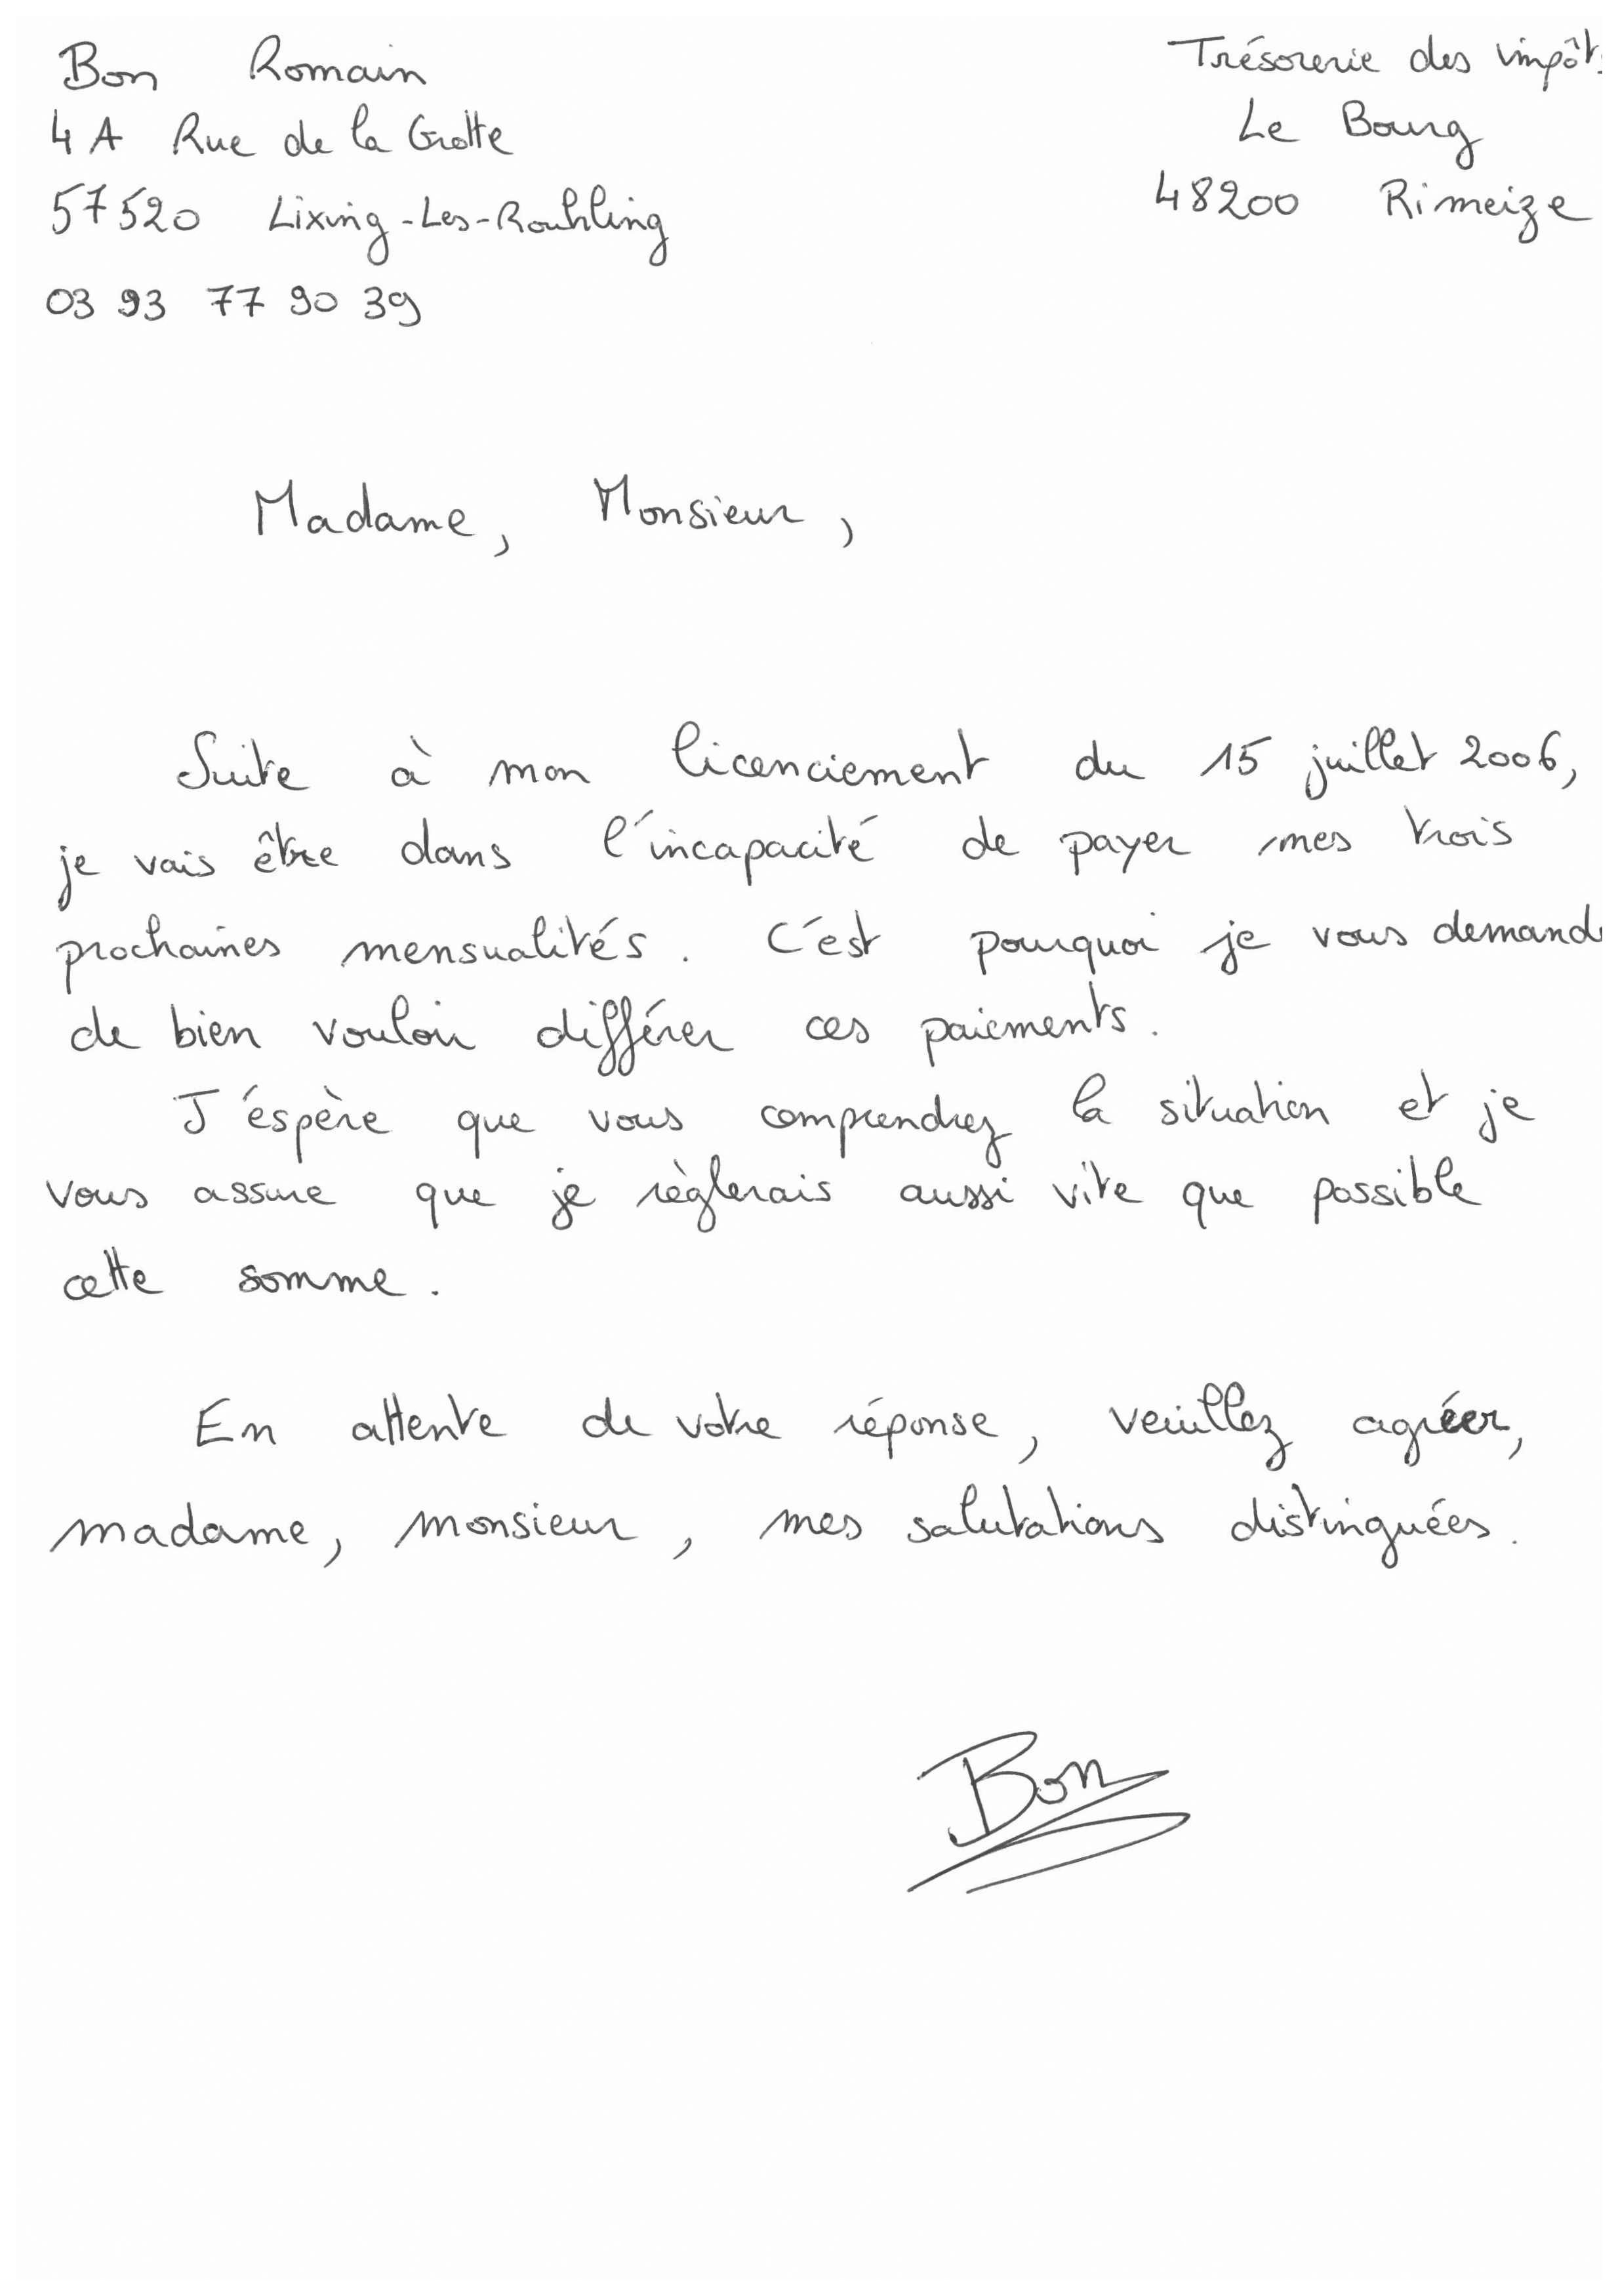 Bon Romain
4A Rue de la Grotte
57520 Lixing-Les-Rouhling
03 93 77 90 39
Trésorerie des impôts
Le Bourg
48200 Rimeize
Madame, Monsieur,
Suite à mon licenciement du 15 juillet 2006,
je vais être dans l'incapacité de payer mes trois
prochaines mensualités. C'est pourquoi je vous demande
de bien vouloir différer ces paiements.
J'espère que vous comprendrez la situation et je
vous assure que je règlerais aussi vite que possible
cette somme.
En attente de votre réponse, veuillez agréer,
madame, monsieur, mes salutations distinguées.
Bon